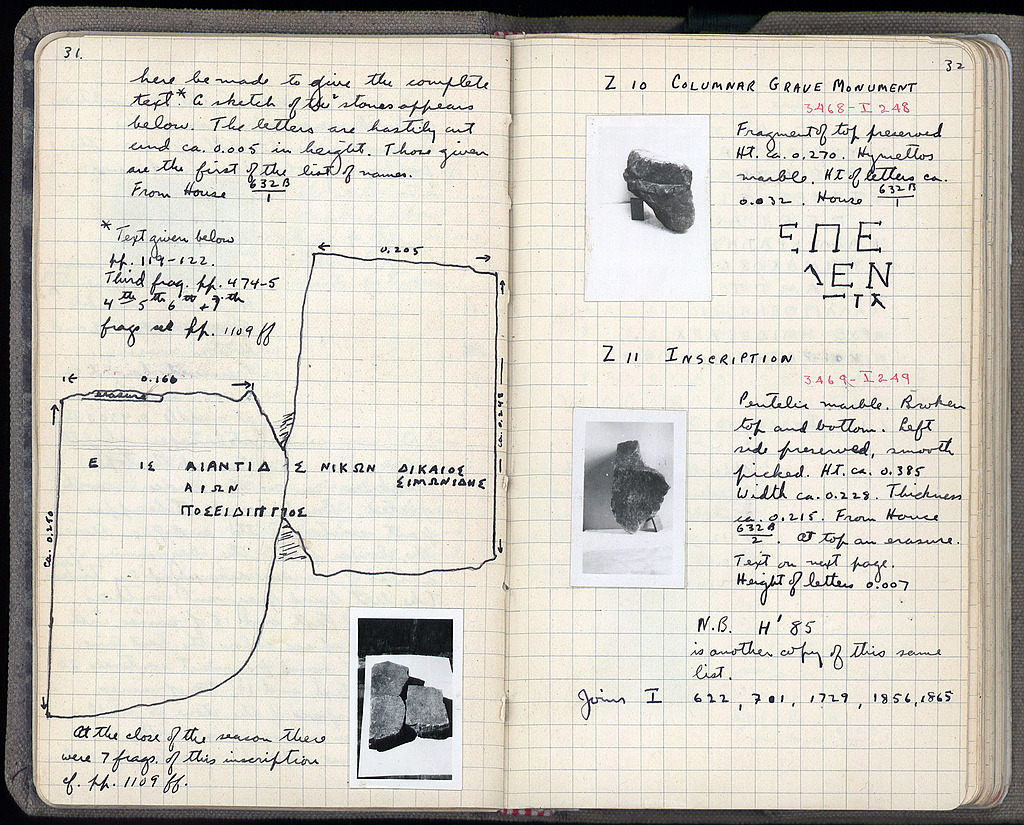 31.
here be made to give the complete
text.* A sketch of the stones appears
below. The letters are hastily cut
and ca. 0.005 in height. Those given
are the first of the list of names.
From House 632 B
1
* Text given below
pp. 119-122.
Third frag. pp. 474-5
4th 5th 6th + 7th
frags see pp. 1109 ff
0.205
0.166
erasure
ca. 0.248
ca. 0.250
Ε ΙΣ ΑΙΑΝΤΙΔ Σ ΝΙΚΩΝ ΔΙΚΑΙΟΣ
ΑΙΩΝ ΣΙΜΩΝΙΔΗΣ
ΠΟΣΕΙΔΙΠΠΟΣ
At the close of the season there
were 7 frags. of this inscription
cf. pp. 1109 ff.
32
Z 10 COLUMNAR GRAVE MONUMENT
3468-I 248
Fragment of top preserved
Ht. ca. 0.270. Hymettos
marble. Ht of letters ca.
0.032. House 632 B
1
ΠΕ
ΕΝ
Z 11 INSCRIPTION
3469-I 249
Pentelic marble. Broken
top and bottom. Left
side preserved, smooth
picked. Ht. ca. 0.385
Width ca. 0.228. Thickness
ca. 0.215. From House
632 B
2 . At top an erasure.
Text on next page.
Height of letters 0.007
N.B. H' 85
is another copy of this same
list.
Joins I 622, 701, 1729, 1856, 1865